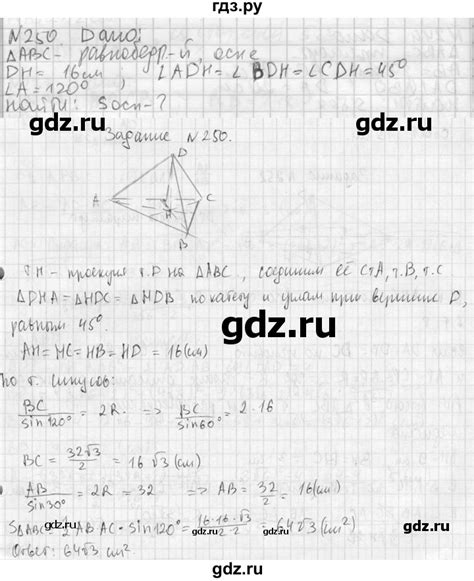 гдз.ру
№250 Дано:
△ABC - равнобедр-й, если
DH = 16 см, ∠ADH = ∠BDH = ∠CDH = 45°
∠A = 120°,
найти: Sосн-?
gdz.ru
gdz.ru
Задание №250.
D
A
C
H
B
т.H - проекция т.D на △ABC, соединим её с т.A, т.B, т.C
△DHA = △HDC = △HDB по катету и углам при вершине D,
равным 45°.
gdz.ru
AH = HC = HB = HD = 16 (см)
По т. синусов:
BC/sin120° = 2R. => BC/sin60° = 2·16
BC = 32√3/2 = 16√3 (см)
AB/sin30° = 2R = 32 => AB = 32/2 = 16 (см)
S△ABC = 1/2 AB·AC·sin120° = 16·16·√3/2·2 = 64√3 (см²)
Ответ: 64√3 см²
gdz.ru
gdz.ru